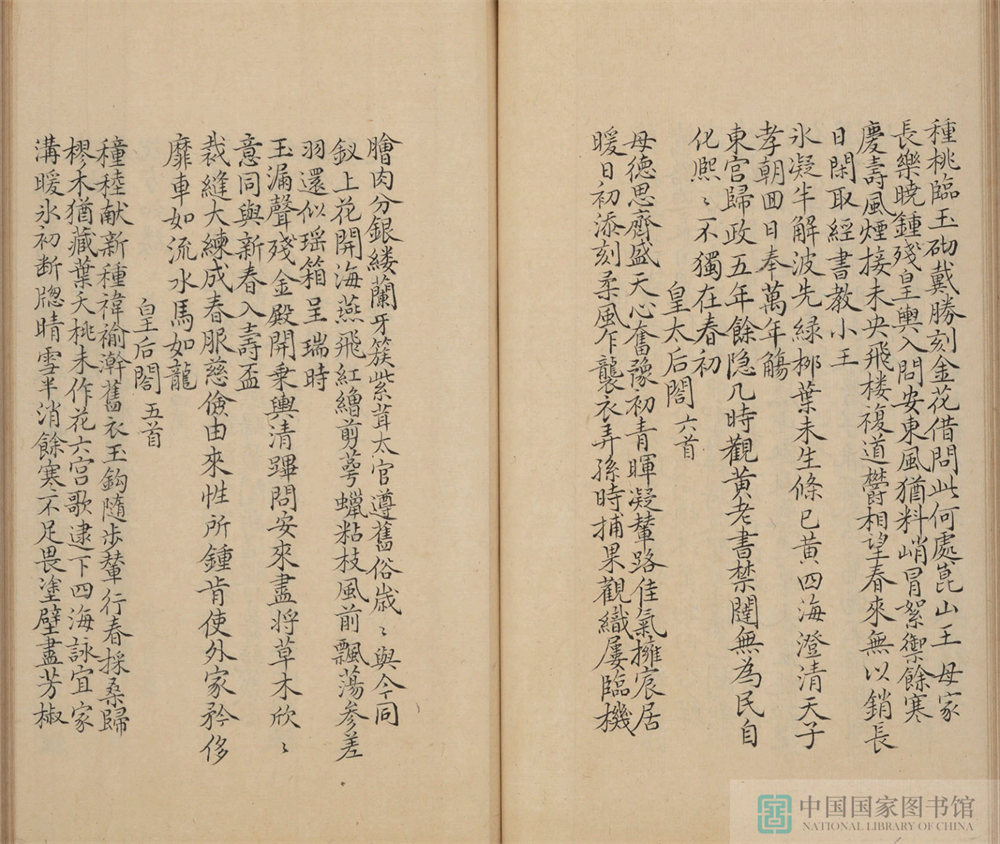 種桃臨玉砌戴勝刻金花借問此何處崑山王母家
長樂曉鍾殘皇輿入問安東風猶料峭冒絮禦餘寒
慶壽風煙接未央飛楼複道欝相望春來無以銷長
日閑取經書教小王
氷凝半解波先緑柳葉未生條已黄四海澄清天子
孝朝回日奉萬年觴
東宫歸政五年餘隐几時觀黄老書禁闥無為民自
化熙〻不獨在春初
皇太后閤 六首
母德思齊盛天心奮豫初青暉凝輦路佳氣擁宸居
暖日初添刻柔風乍襲衣弄孫時捕果觀織屢臨機
膾肉分銀縷蘭牙簇紫茸太官遵舊俗歲〻與今同
釵上花開海燕飛紅繒剪蕚蠟粘枝風前飄蕩參差
羽還似瑶箱呈瑞時
玉漏聲殘金殿開乗輿清蹕問安來盡将草木欣〻
意同與新春入壽盃
裁縫大練成春服慈儉由來性所鍾肯使外家矜侈
靡車如流水馬如龍
皇后閤 五首
穜稑献新種褘褕澣舊衣玉鈎随步輦行春採桑歸
樛木猶藏葉夭桃未作花六宫歌逮下四海詠宜家
溝暖氷初断牕晴雪半消餘寒不足畏塗壁盡芳椒
中国国家图书馆
NATIONAL LIBRARY OF CHINA